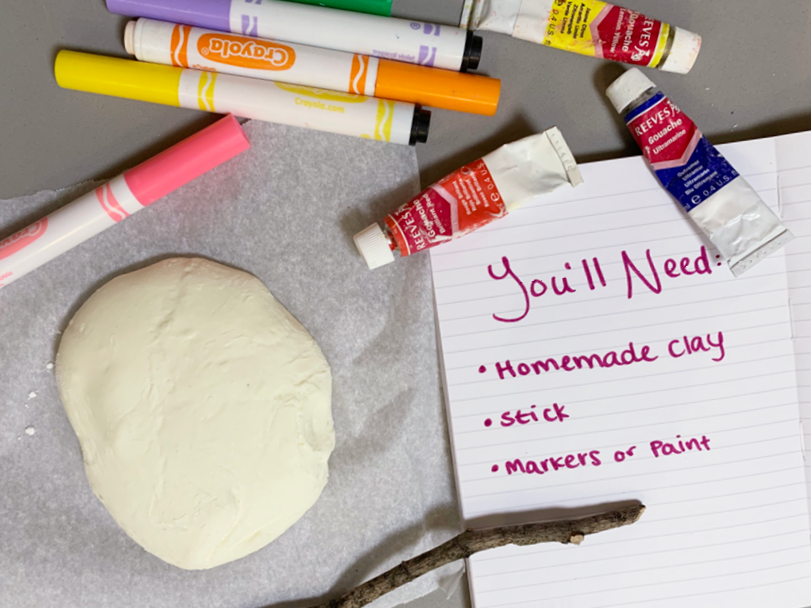 Crayola
Crayola.com
REEVES
Gouache
Lemon Yellow
REEVES
Gouache
Ultramarine
REEVES
Gouache
You'll Need:
• Homemade Clay
• Stick
• Markers or Paint